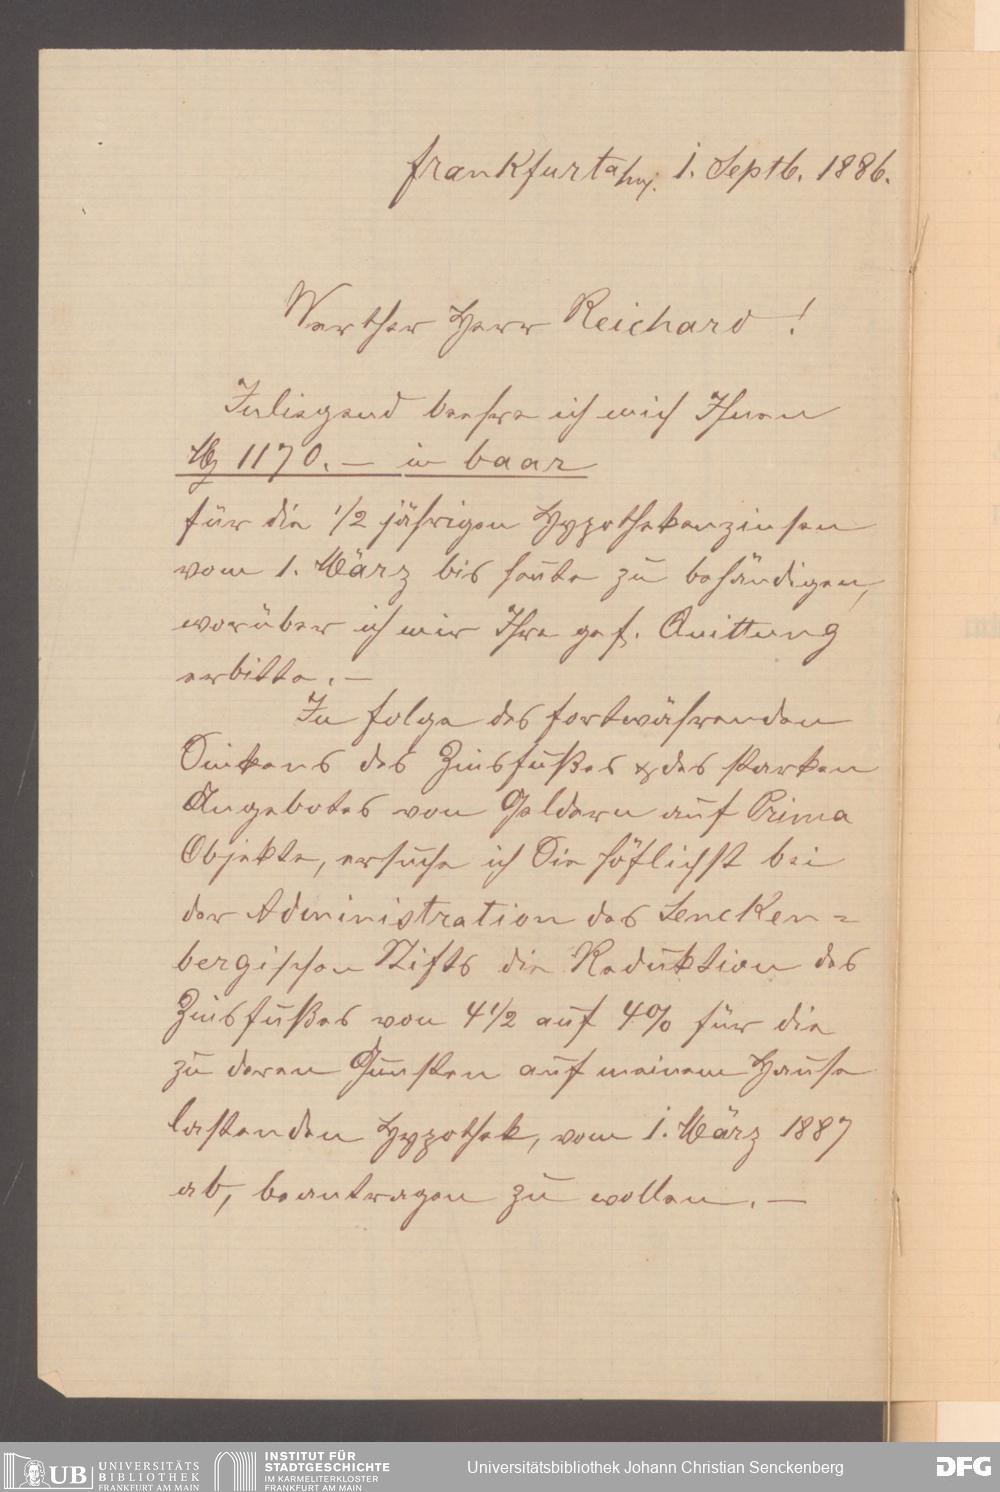 Frankfurt a/m. 1. Septb. 1886.
Werther Herr Reichard!
Inliegend beehre ich mich Ihnen
M 1170. – in baar
für die 1/2 jährigen Hypothekenzinsen
vom 1. März bis heute zu behändigen,
worüber ich mir Ihre gef. Quittung
erbitte. –
In folge des fortwährenden
Sinkens des Zinsfußes & des starken
Angebotes von Geldern auf Prima
Objekte, ersuche ich Sie höflichst bei
der Administration des Sencken=
bergischen Stifts die Reduktion des
Zinsfußes von 4 1/2 auf 4% für die
zu deren Gunsten auf meinem Hause
lastenden Hypothek, vom 1. März 1887
ab, beantragen zu wollen. –
UB UNIVERSITÄTS
BIBLIOTHEK
FRANKFURT AM MAIN
INSTITUT FÜR
STADTGESCHICHTE
IM KARMELITERKLOSTER
FRANKFURT AM MAIN
Universitätsbibliothek Johann Christian Senckenberg
DFG